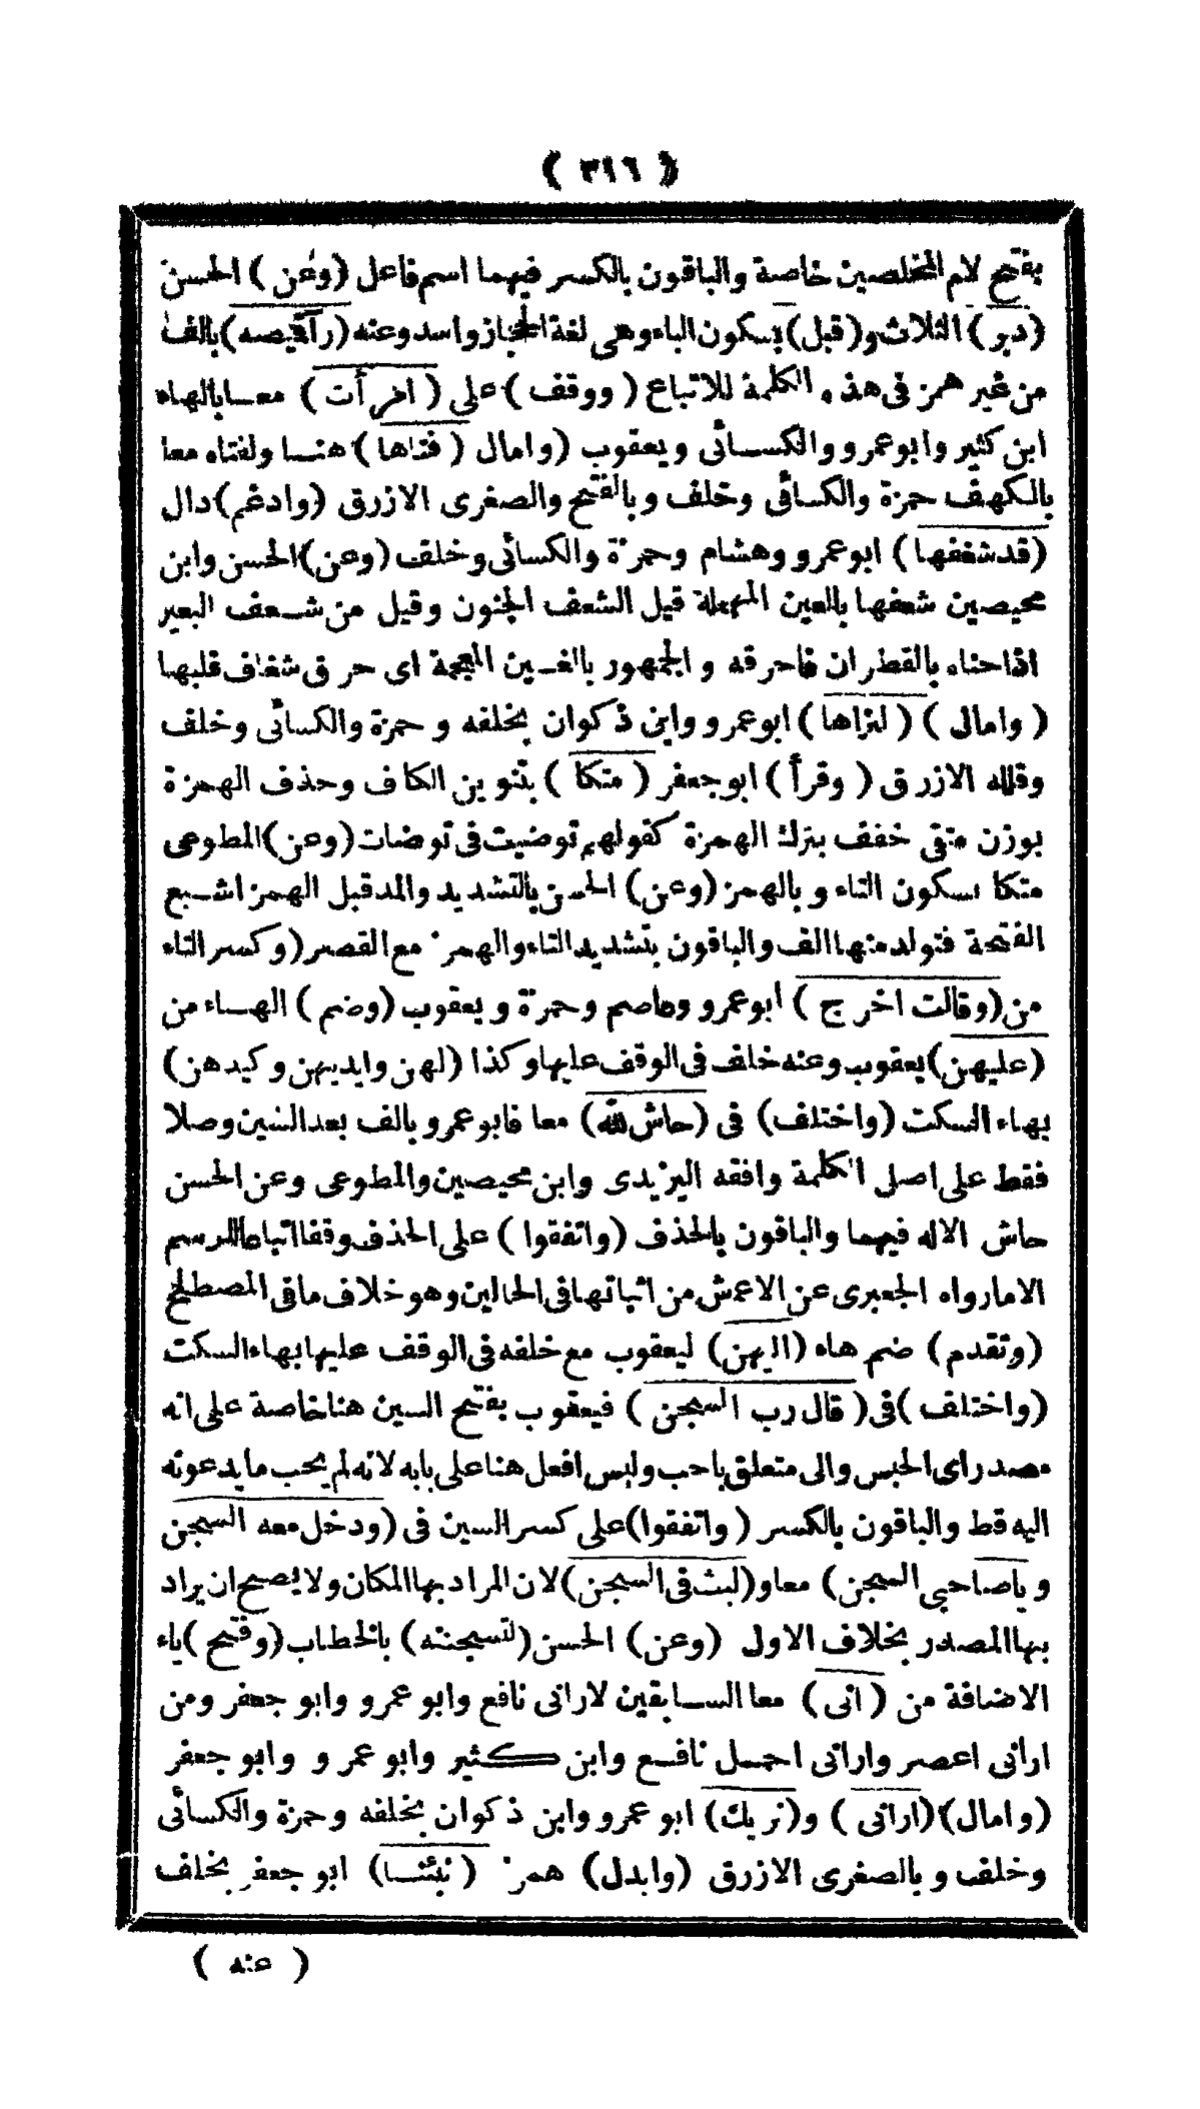 ( ٣١٦ )
بفتح لام المخلصين خاصة والباقون بالكسر فيهما اسم فاعل (وعن) الحسن
(دبر) الثلاث و(قبل) بسكون الباء وهى لغة الحجاز واسد وعنه (رآ قميصه) بالف
من غير همز فى هذه الكلمة للاتباع (ووقف) على (امرأت) معا بالهاء
ابن كثير وابو عمرو والكسائى ويعقوب (وامال (فتاها) هنا ولفتاه معا
بالكهف حمزة والكسائى وخلف وبالفتح والصغرى الازرق (وادغم) دال
(قد شغفها) ابو عمرو وهشام وحمزة والكسائى وخلف (وعن) الحسن وابن
محيصين شعفها بالعين المهملة قيل الشعف الجنون وقيل من شعف البعير
اذا هناه بالقطران فاحرقه والجمهور بالغين المعجمة اى حرق شغاف قلبها
(وامال) (لنراها) ابو عمرو وابن ذكوان بخلفه وحمزة والكسائى وخلف
وقلله الازرق (وقرأ) ابو جعفر (متكا) بتنوين الكاف وحذف الهمزة
بوزن متقى خفف بترك الهمزة كقولهم توضيت فى توضات (وعن) المطوعى
متكا بسكون التاء وبالهمز (وعن) الحسن بالتشديد والمد قبل الهمز اشبع
الفتحة فتولد منها الف والباقون بتشديد التاء والهمز مع القصر (وكسر التاء
من (وقالت اخرج) ابو عمرو وعاصم وحمزة ويعقوب (وضم) الهاء من
(عليهن) يعقوب وعنه خلف فى الوقف عليها وكذا (لهن وايديهن وكيدهن)
بهاء السكت (واختلف) فى (حاش لله) معا فابو عمرو بالف بعد الشين وصلا
فقط على اصل الكلمة وافقه اليزيدى وابن محيصين والمطوعى وعن الحسن
حاش الاله فيهما والباقون بالحذف (واتفقوا) على الحذف وقفا اتباعا للرسم
الا ما رواه الجعبرى عن الاعمش من اثباتها فى الحالين وهو خلاف ما فى المصطلح
(وتقدم) ضم هاء (اليهن) ليعقوب مع خلفه فى الوقف عليها بهاء السكت
(واختلف) فى (قال رب السجن) فيعقوب بفتح السين هنا خاصة على انه
مصدر اى الحبس والى متعلق باحب وليس افعل هنا على بابه لانه لم يحب ما يدعونه
اليه قط والباقون بالكسر (واتفقوا) على كسر السين فى (ودخل معه السجن
وياصاحبى السجن) معا و(لبث فى السجن) لان المراد بها المكان ولا يصح ان يراد
بها المصدر بخلاف الاول (وعن) الحسن (لتسجننه) بالخطاب (وفتح) ياء
الاضافة من (انى) معا السابقين لارانى نافع وابو عمرو وابو جعفر ومن
ارانى اعصر وارانى احمل نافع وابن كثير وابو عمرو وابو جعفر
(وامال) (ارانى) و(نريك) ابو عمرو وابن ذكوان بخلفه وحمزة والكسائى
وخلف وبالصغرى الازرق (وابدل) همز (نبئنا) ابو جعفر بخلف
( عنه )